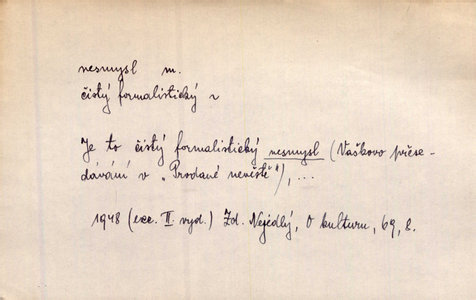 nesmysl m.
čistý formalistický ~
Je to čistý formalistický nesmysl (Vaškovo přese-
dávání v „Prodané nevěstě"), ...
1948 (exc. II. vyd.) Zd. Nejedlý, O kulturu, 69, 8.